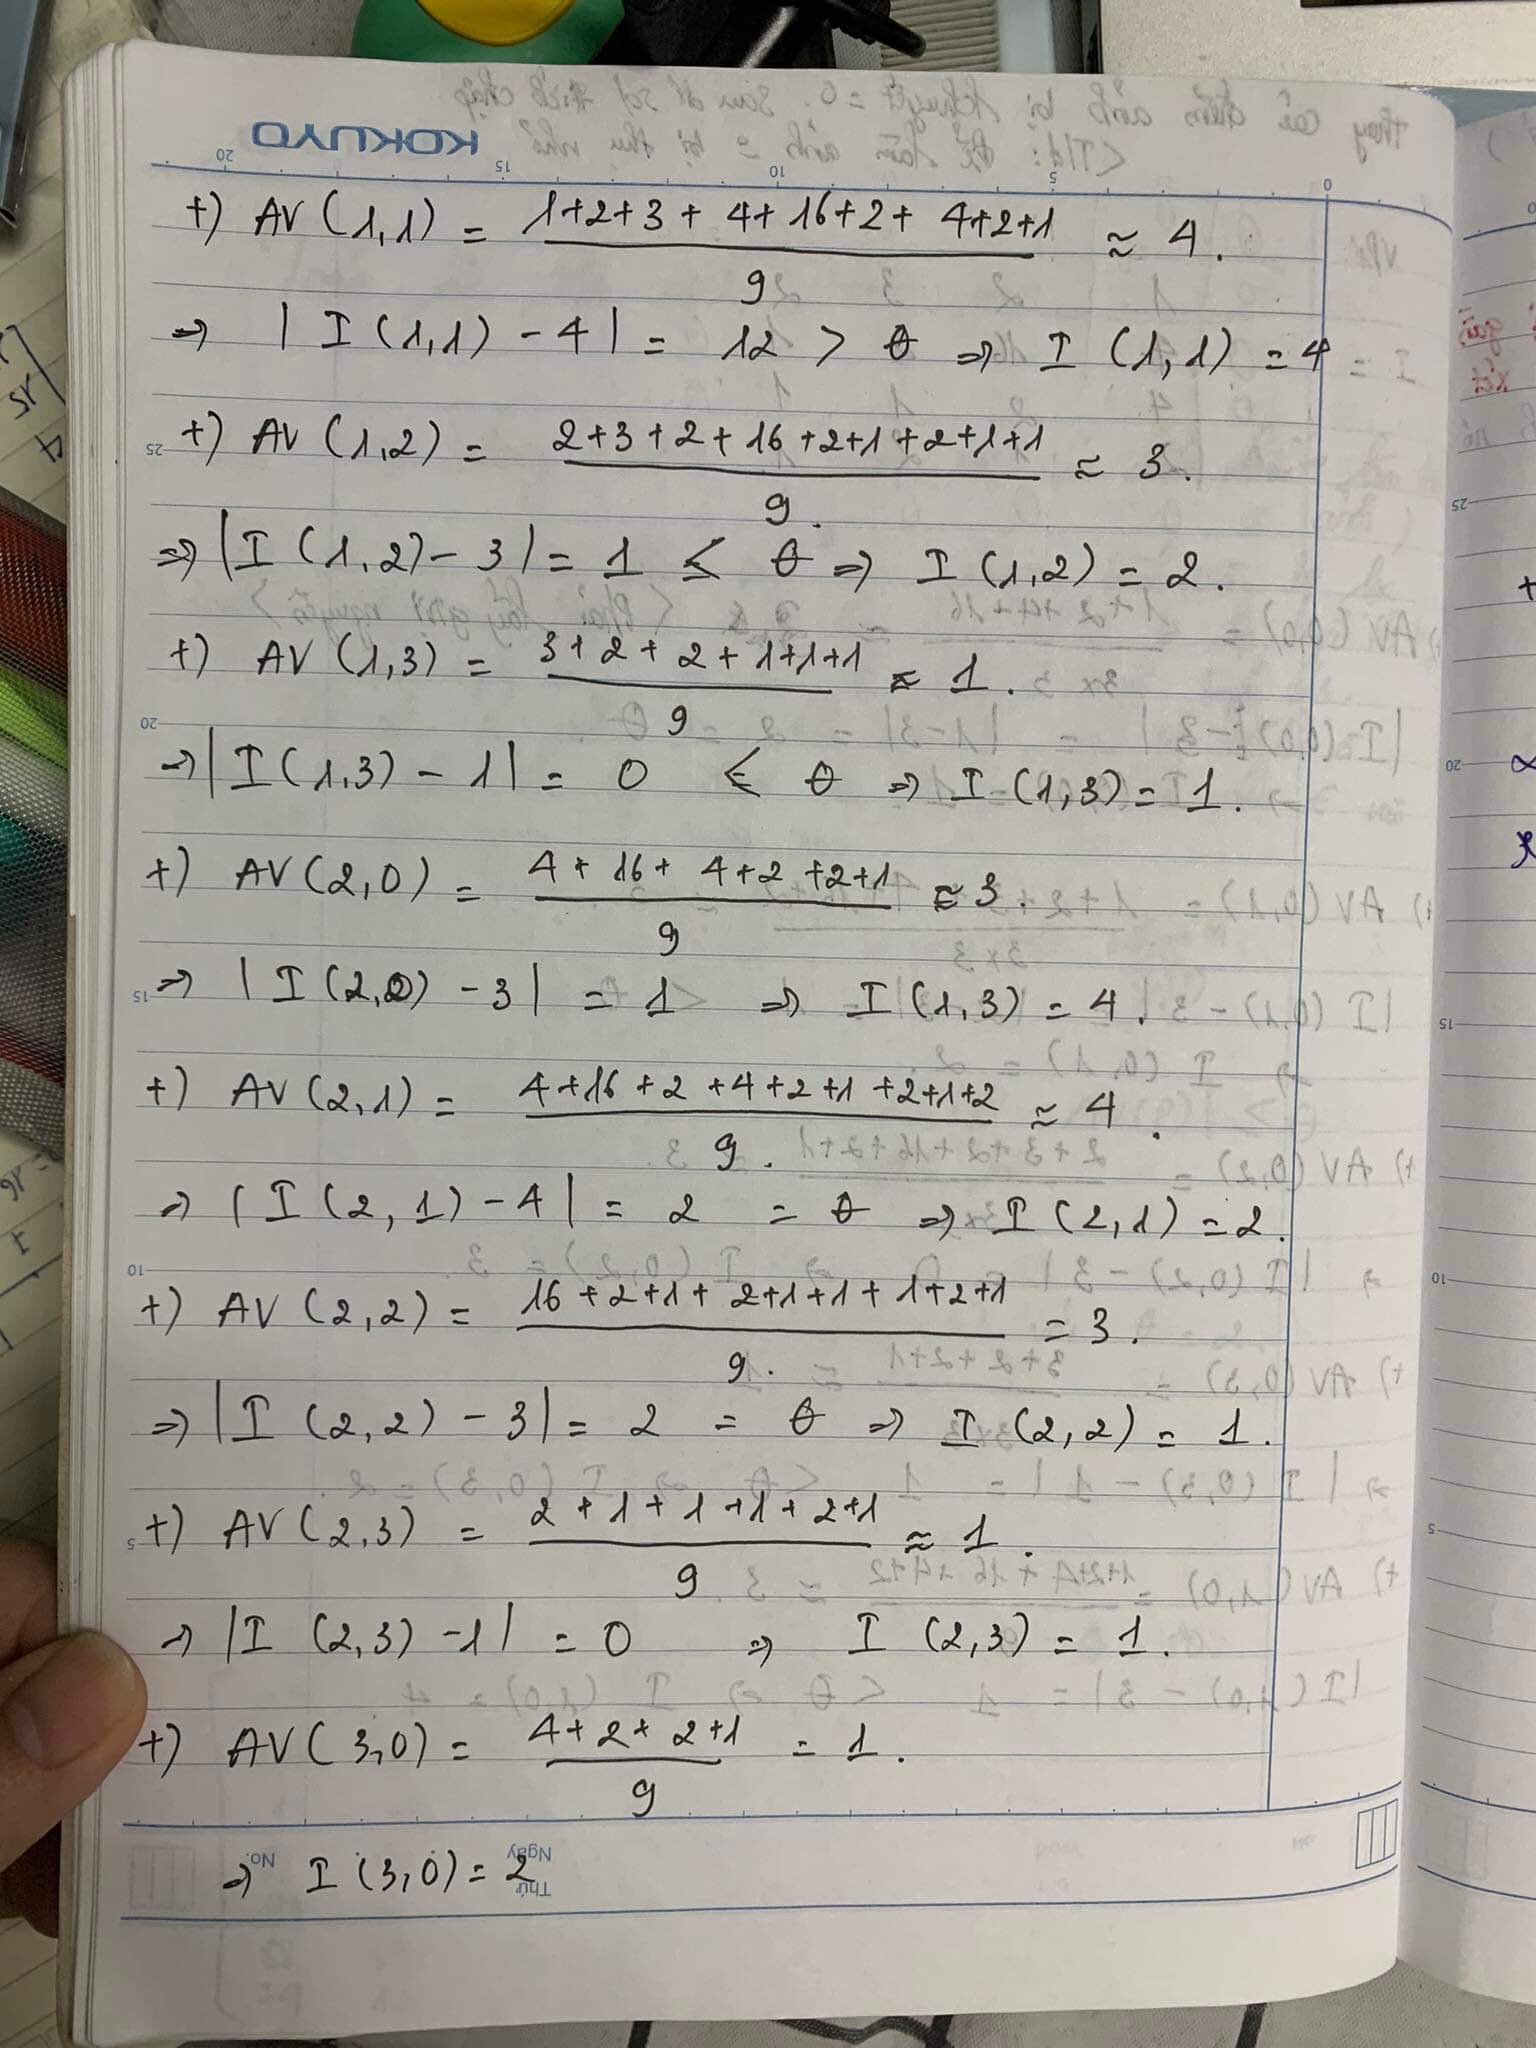 KOKUYO
+) AV (1,1) = 1+2+3 + 4+16+2+ 4+2+1 / 9 ≈ 4.
⇒ | I (1,1) - 4 | = 12 > θ ⇒ I (1,1) = 4
+) AV (1,2) = 2+3+2+16+2+1+2+1+1 / 9. ≈ 3.
⇒ | I (1,2) - 3 | = 1 ≤ θ ⇒ I (1,2) = 2.
+) AV (1,3) = 3+2+2+1+1+1 / 9 ≈ 1.
⇒ | I (1,3) - 1 | = 0 ≤ θ ⇒ I (1,3) = 1.
+) AV (2,0) = 4+16+ 4+2+2+1 / 9 ≈ 3.
⇒ | I (2,0) - 3 | = 1 ⇒ I (1,3) = 4.
+) AV (2,1) = 4+16+2+4+2+1+2+1+2 / 9. ≈ 4.
⇒ | I (2,1) - 4 | = 2 = θ ⇒ I (2,1) = 2.
+) AV (2,2) = 16+2+1+ 2+1+1+1+2+1 / 9. = 3.
⇒ | I (2,2) - 3 | = 2 = θ ⇒ I (2,2) = 1.
+) AV (2,3) = 2+1+1+1+2+1 / 9 ≈ 1.
⇒ | I (2,3) - 1 | = 0 ⇒ I (2,3) = 1.
+) AV (3,0) = 4+2+2+1 / 9 = 1.
⇒ I (3,0) = 2
No. Thứ Ngày